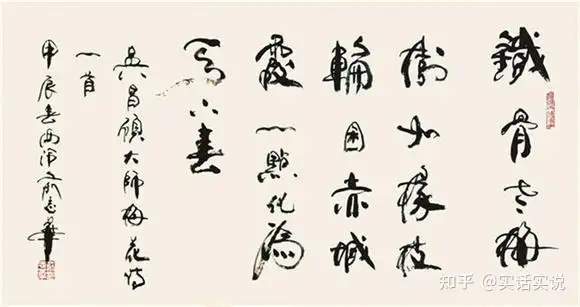 鐵骨老梅
樹如椽枝
輪囷赤城
霞一點化為
天下春
吳昌碩大師梅花詩
一首
甲辰春西泠華
知乎 @实话实说